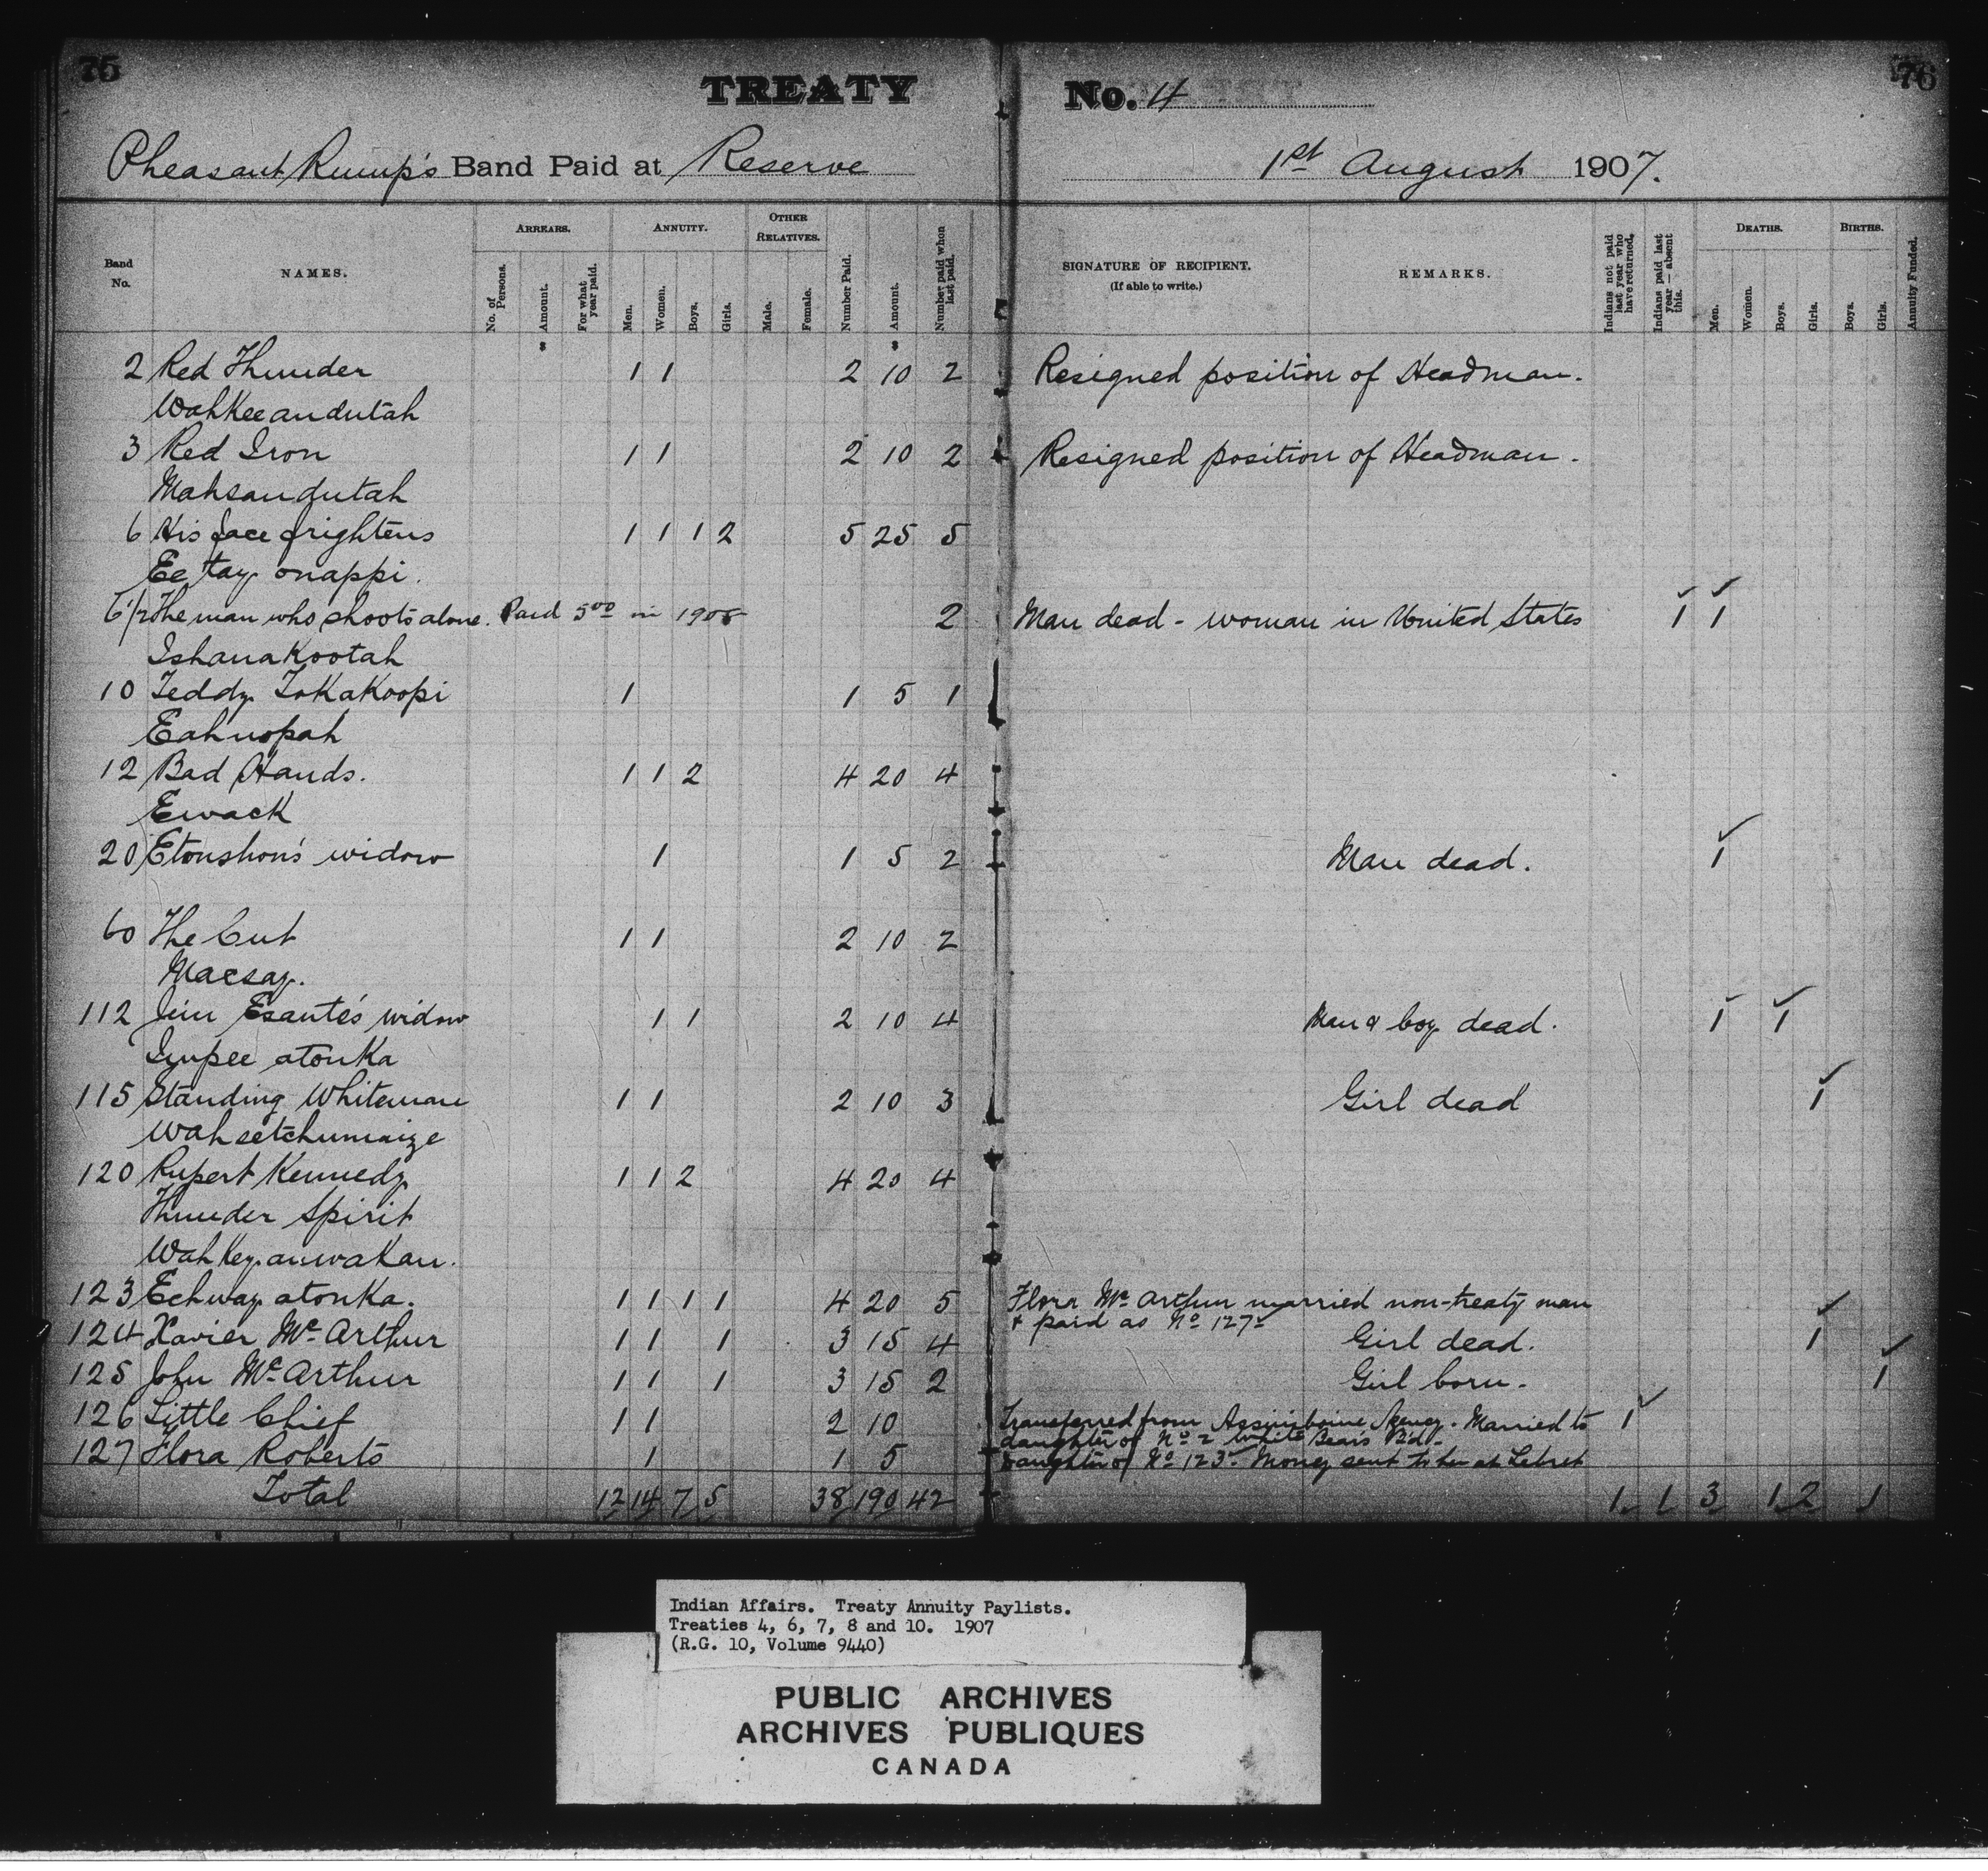 75
76
TREATY No. 4
Pheasant Rump's Band Paid at Reserve 1st August 1907.
Band No.
NAMES.
ARREARS.
No. of Persons.
Amount.
For what year paid.
ANNUITY.
Men.
Women.
Boys.
Girls.
OTHER RELATIVES.
Male.
Female.
Number Paid.
Amount.
Number paid when last paid.
SIGNATURE OF RECIPIENT.
(If able to write.)
REMARKS.
Indians not paid last year who have returned.
Indians paid last year — absent this.
DEATHS.
Men.
Women.
Boys.
Girls.
BIRTHS.
Boys.
Girls.
Annuity Funded.
2 Red Thunder 1 1 2 10 2 Resigned position of Headman.
Wahkeeandutah
3 Red Iron 1 1 2 10 2 Resigned position of Headman.
Mahsandutah
6 His face frightens 1 1 1 2 5 25 5
Ee tay onappi.
6 1/2 The man who shoots alone. Paid 5 00 in 1908 2 Man dead - woman in United States 1 1
Ishanakootah
10 Teddy Tokakoopi 1 1 5 1
Eahnopah
12 Bad Hands. 1 1 2 4 20 4
Ewack
20 Etonshon's widow 1 1 5 2 Man dead. 1
60 The Cut 1 1 2 10 2
Macsay.
112 Jim Esante's widow 1 1 2 10 4 Man & boy dead. 1 1
Impee atonka
115 Standing Whiteman 1 1 2 10 3 Girl dead 1
Wahsetchunaize
120 Rupert Kennedy 1 1 2 4 20 4
Thunder Spirit
Wahkeyanwakan.
123 Echway atonka. 1 1 1 1 4 20 5 Flora Mc Arthur married non-treaty man
& paid as No 127
124 Xavier Mc Arthur 1 1 1 3 15 4 Girl dead. 1
125 John Mc Arthur 1 1 1 3 15 2 Girl born. 1
126 Little Chief 1 1 2 10 Transferred from Assiniboine Agency. Married to 1
daughter of No 2 White Bears Bd.
127 Flora Roberts 1 1 5 Daughter of No 123. Money sent to her at Lebret
Total 12 14 7 5 38 190 42 1 1 3 1 2 1
Indian Affairs. Treaty Annuity Paylists.
Treaties 4, 6, 7, 8 and 10. 1907
(R.G. 10, Volume 9440)
PUBLIC ARCHIVES
ARCHIVES PUBLIQUES
CANADA